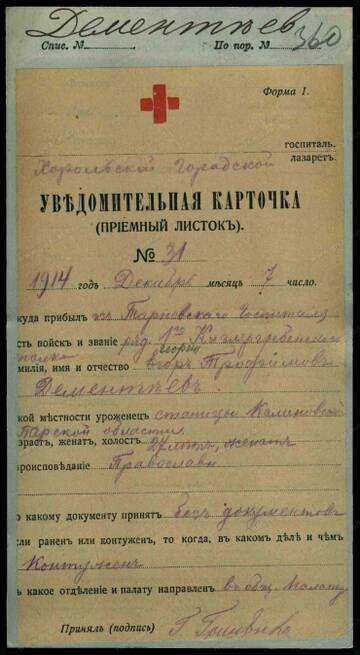 Дементьев
Спис. № По пор. № 360
Форма 1.
госпиталь.
Хорольской Городской лазаретъ.
УВѢДОМИТЕЛЬНАЯ КАРТОЧКА
(ПРІЕМНЫЙ ЛИСТОКЪ).
№ 31
1914 годъ Декабрь мѣсяцъ 7 число.
куда прибылъ изъ Госпиталя
сть войскъ и званіе ряд. 1го Кизляргребенского
полка Георгій
милія, имя и отчество Егоръ Трофимовъ
Дементьевъ
кой мѣстности уроженецъ станицы Калиновской
Терской области
зрастъ, женатъ, холостъ 27 лѣтъ, женатъ
роисповѣданіе Православн
о какому документу принятъ безъ документовъ
сли раненъ или контуженъ, то когда, въ какомъ дѣлѣ и чѣмъ
Контуженъ
ъ какое отдѣленіе и палату направленъ въ общ. палату
Принялъ (подпись)